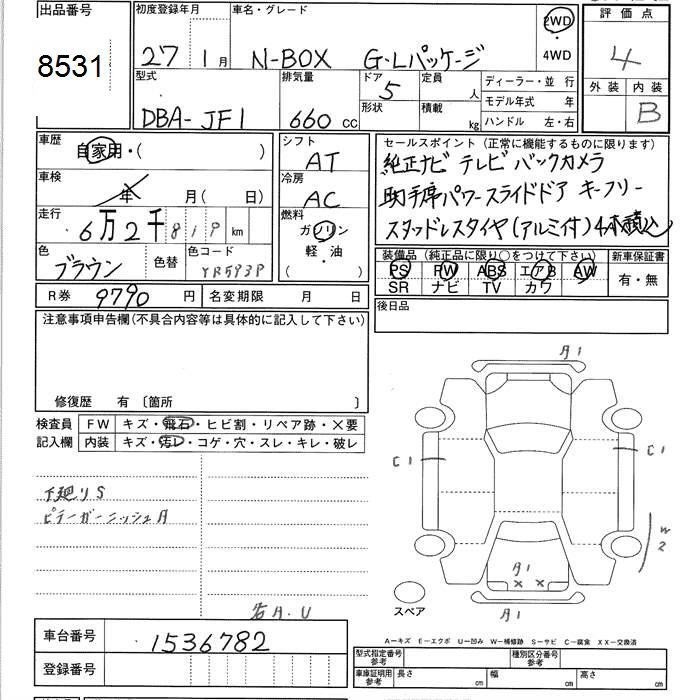 出品番号 8531
初度登録年月 27 1月
車名・グレード N-BOX G・Lパッケージ
2WD ・ 4WD
評価点 4
外装 内装 B
型式 DBA-JF1
排気量 660 cc
ドア 5 形状
定員 人 積載 kg
ディーラー・並行
モデル年式 年
ハンドル 左・右
車歴 自家用・( )
車検 年 月( 日)
走行 6万2千819 km
色 ブラウン 色替 色コード YR593P
シフト AT
冷房 AC
燃料 ガソリン 軽・油 ( )
セールスポイント(正常に機能するものに限ります)
純正ナビ テレビ バックカメラ
助手席パワースライドドア キーフリー
スタッドレスタイヤ(アルミ付)4本積込
装備品(純正品に限り○をつけて下さい)
PS PW ABS エアB AW
SR ナビ TV カワ
新車保証書 有・無
R券 9790 円 名変期限 月 日
後日品
注意事項申告欄(不具合内容等は具体的に記入して下さい)
修復歴 有 〔箇所 〕
検査員記入欄
FW キズ・飛石・ヒビ割・リペア跡・×要
内装 キズ・汚レ・コゲ・穴・スレ・キレ・破レ
下廻りS
ピラーガーニッシュA
A1
C1
C1
W2
A1
× ×
A1
スペア
A.U
A-キズ E-エクボ U-凹み W-補修跡 S-サビ C-腐食 XX-交換済
車台番号 1536782
登録番号
型式指定番号 参考 種別区分番号 参考
車庫証明用 参考 長さ cm 幅 cm 高さ cm